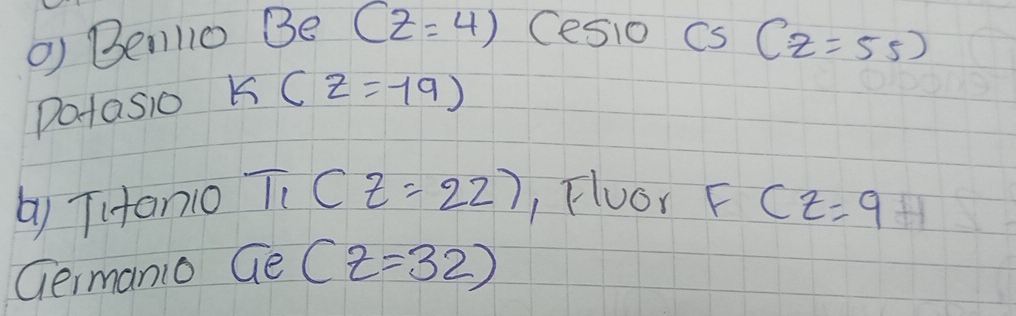 a) Berilio Be (Z=4) Cesio Cs (Z=55)
Potasio K (Z=19)
b) Titanio Ti (Z=22), Fluor F (Z=9
Germanio Ge (Z=32)